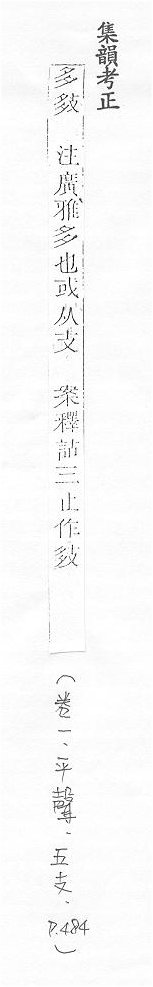 集韻考正
多 注廣雅多也或从支 案釋詁三止作
（卷一、平聲、五支、P.484）